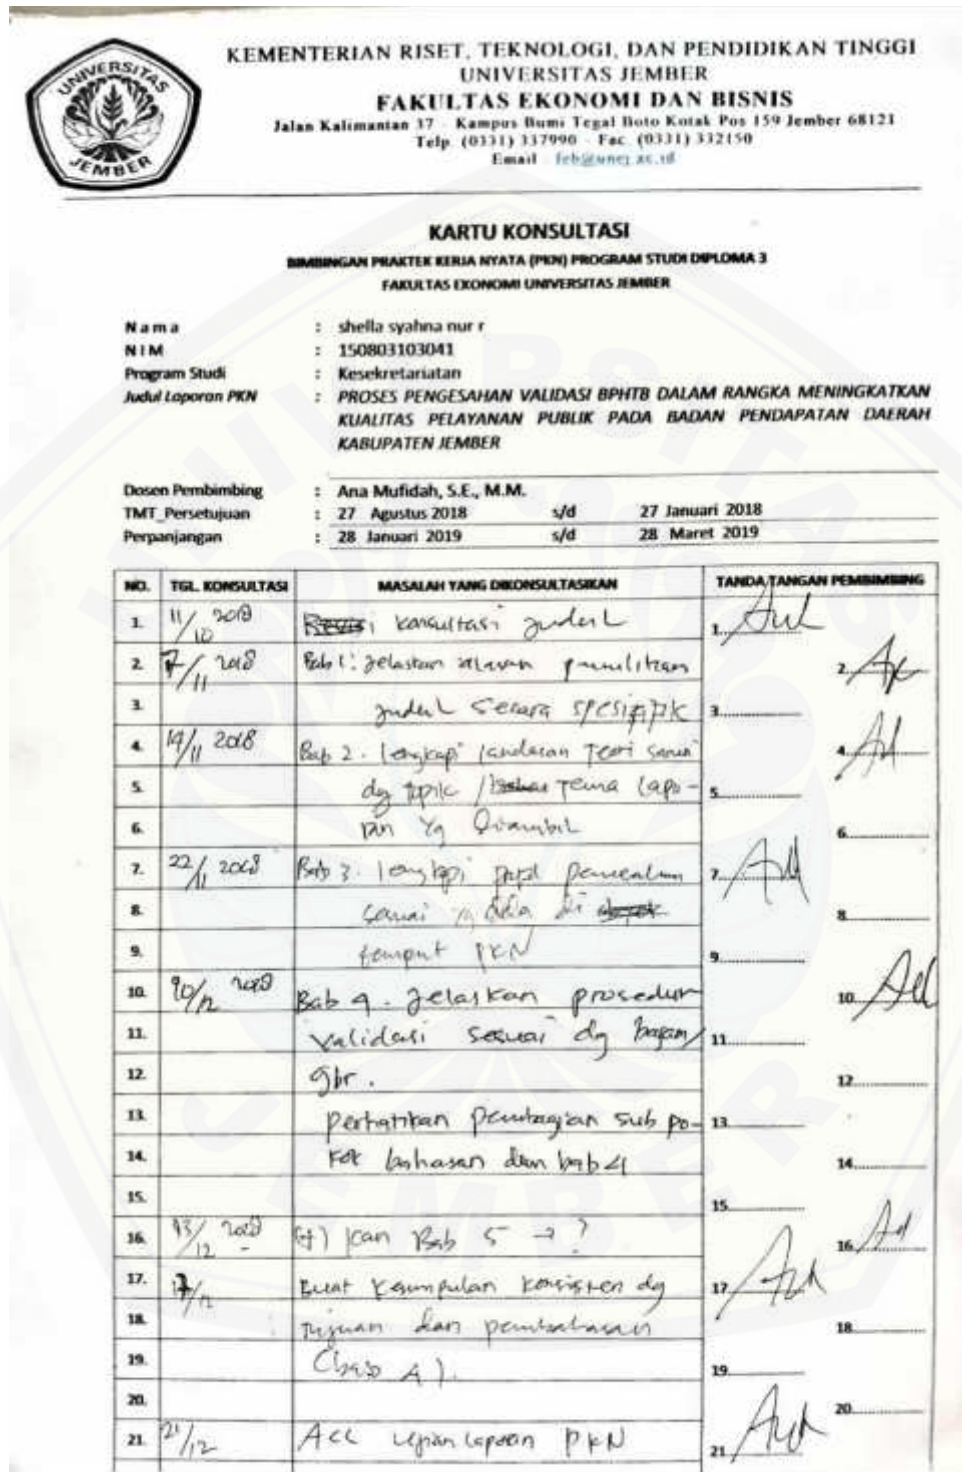 UNIVERSITAS
JEMBER
KEMENTERIAN RISET, TEKNOLOGI, DAN PENDIDIKAN TINGGI
UNIVERSITAS JEMBER
FAKULTAS EKONOMI DAN BISNIS
Jalan Kalimantan 37 - Kampus Bumi Tegal Boto Kotak Pos 159 Jember 68121
Telp. (0331) 337990 - Fac. (0331) 332150
Email : feb@unej.ac.id
KARTU KONSULTASI
BIMBINGAN PRAKTEK KERJA NYATA (PKN) PROGRAM STUDI DIPLOMA 3
FAKULTAS EKONOMI UNIVERSITAS JEMBER
Nama : shella syahna nur r
NIM : 150803103041
Program Studi : Kesekretariatan
Judul Laporan PKN : PROSES PENGESAHAN VALIDASI BPHTB DALAM RANGKA MENINGKATKAN
KUALITAS PELAYANAN PUBLIK PADA BADAN PENDAPATAN DAERAH
KABUPATEN JEMBER
Dosen Pembimbing : Ana Mufidah, S.E., M.M.
TMT_Persetujuan : 27 Agustus 2018 s/d 27 Januari 2018
Perpanjangan : 28 Januari 2019 s/d 28 Maret 2019
NO. TGL. KONSULTASI MASALAH YANG DIKONSULTASIKAN TANDA TANGAN PEMBIMBING
1. 11/10 2018 konsultasi judul 1.
2. 7/11 2018 Bab 1: jelaskan alasan pemilihan 2.
3. judul secara spesifik 3.
4. 14/11 2018 Bab 2. lengkapi landasan teori sesuai 4.
5. dg topik / tema lapo- 5.
6. ran yg diambil 6.
7. 22/11 2018 Bab 3. lengkapi 7.
8. sesuai yg ada di 8.
9. tempat PKN 9.
10. /12 2018 Bab 4. jelaskan prosedur 10.
11. validasi sesuai dg bagan/ 11.
12. gbr. 12.
13. perhatikan pembagian sub po- 13.
14. kok bahasan dlm bab 4 14.
15. 15.
16. 13/12 2018 Bab 5 → ? 16.
17. 17/12 Buat kesimpulan konsisten dg 17.
18. tujuan dan pembahasan 18.
19. (bab 4). 19.
20. 20.
21. 21/12 Acc ujian laporan PKN 21.